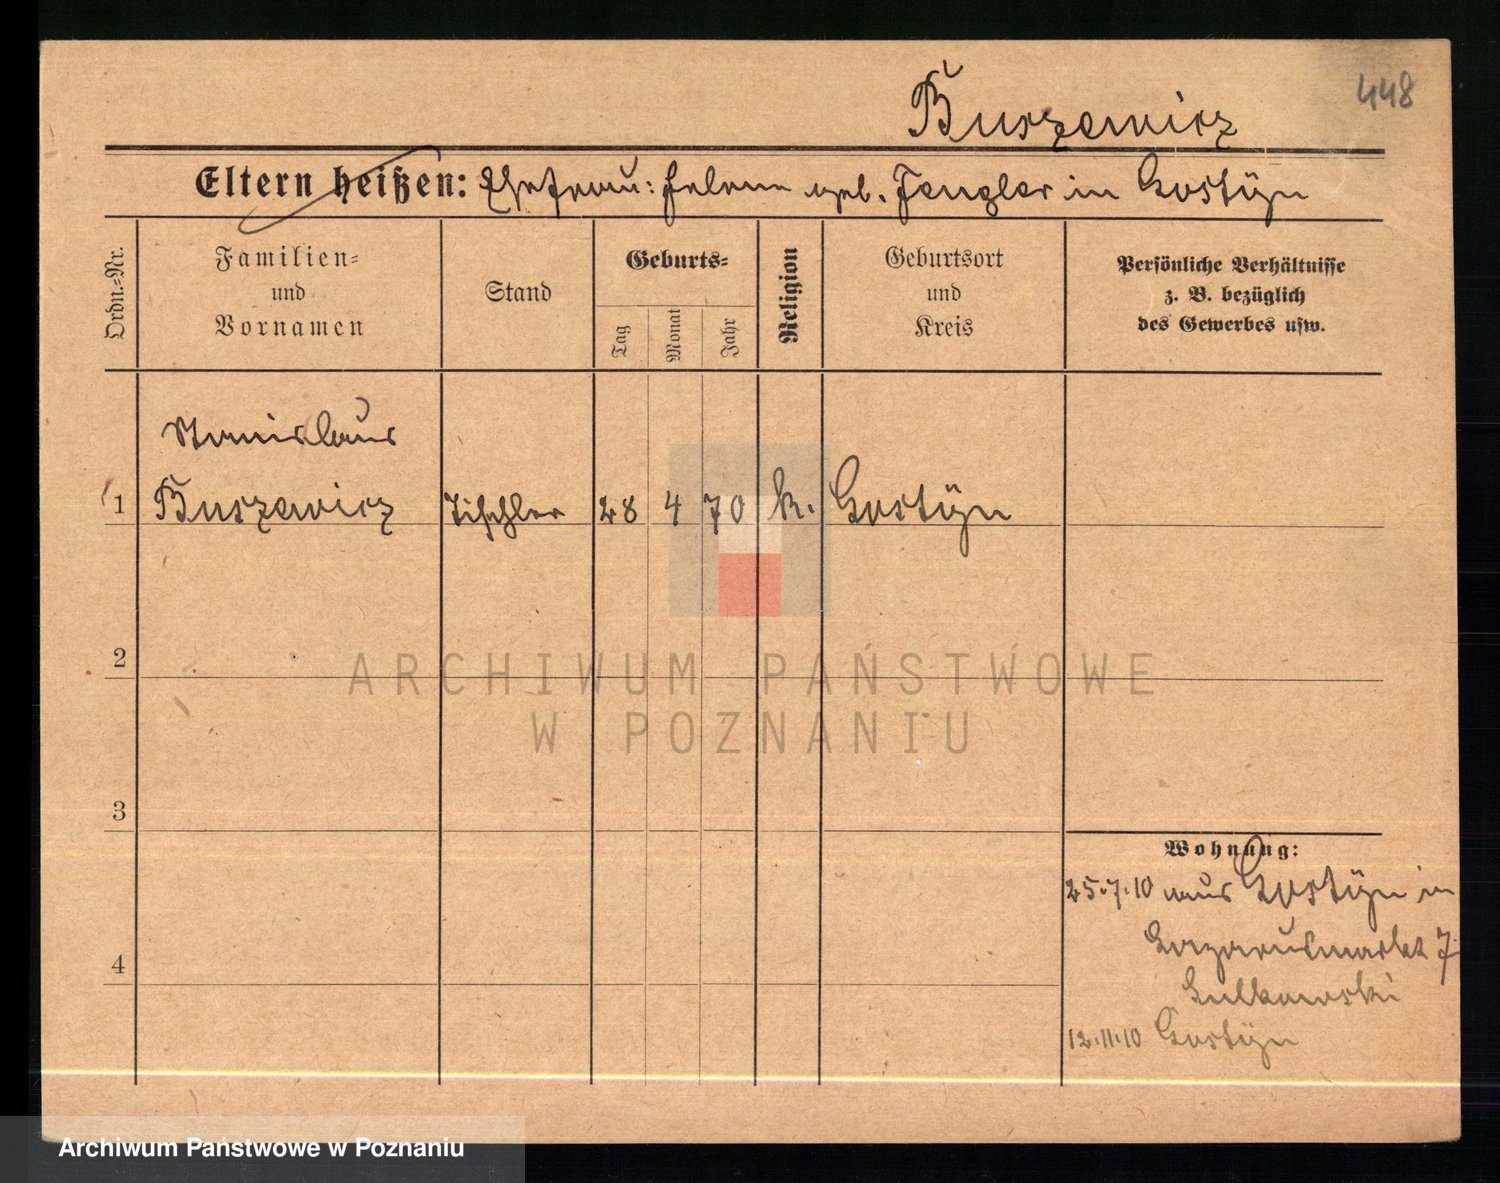 448
Buszewicz
Eltern heißen: Ehefrau: Helene geb. Fengler in Gostÿn
Ordn.-Nr.
Familien-
und
Vornamen
Stand
Geburts-
Tag
Monat
Jahr
Religion
Geburtsort
und
Kreis
Persönliche Verhältnisse
z. B. bezüglich
des Gewerbes usw.
Stanislaus
1 Buszewicz Tischler 28 4 70 k. Gostÿn
2
ARCHIWUM PAŃSTWOWE
W POZNANIU
3
Wohnung:
25.7.10 aus Gostÿn in
Lazarusmarkt 7
4
12.11.10 Gostÿn
Archiwum Państwowe w Poznaniu